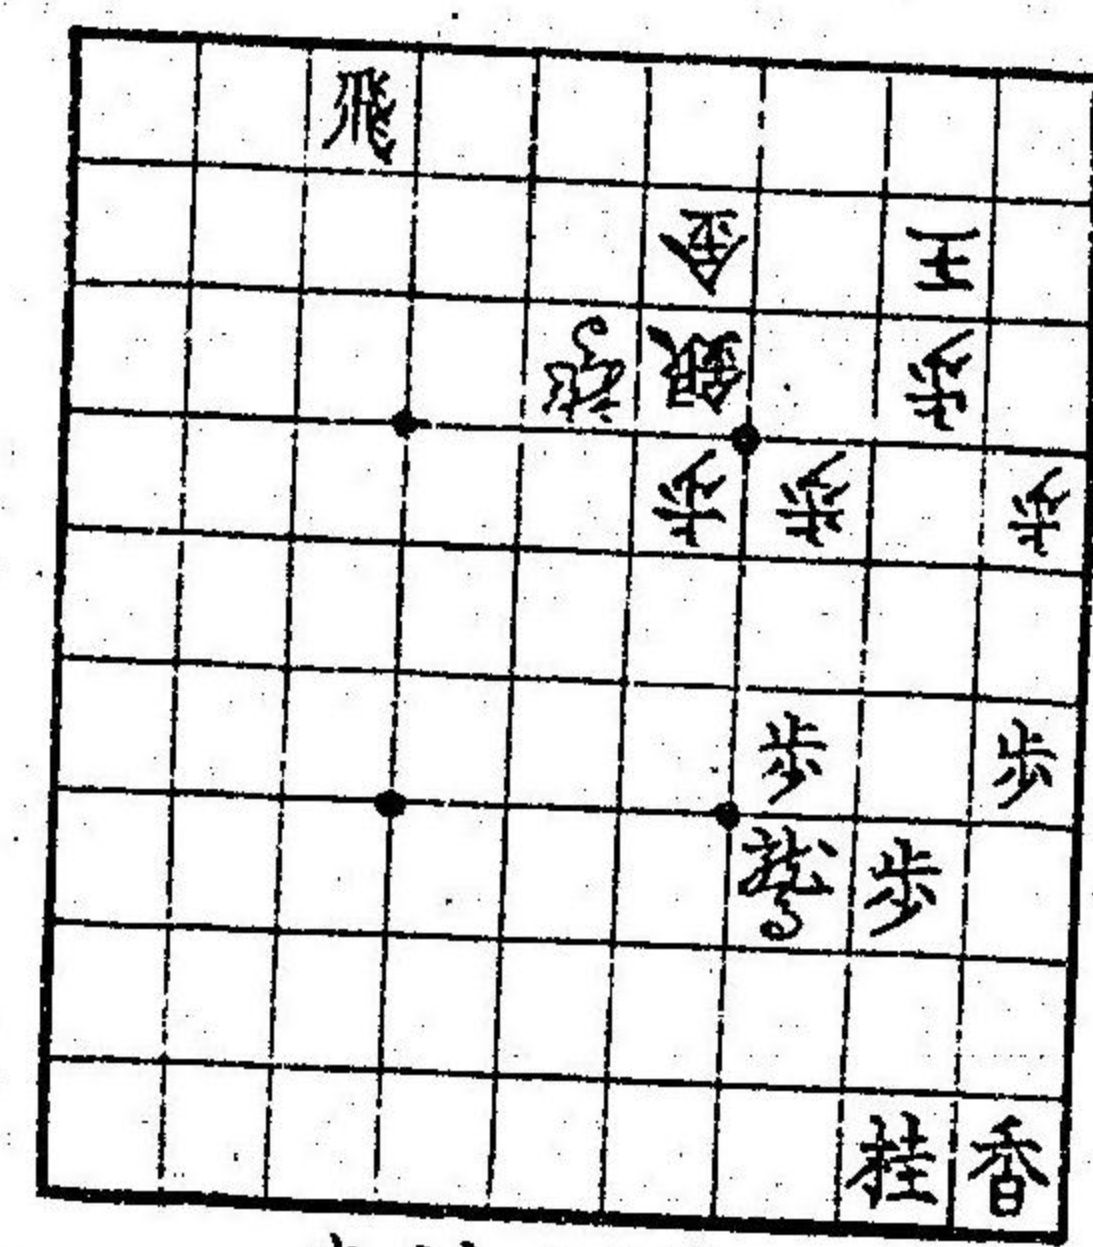 飛
金 王
銀 歩
歩 歩 歩
歩 歩
歩
桂 香